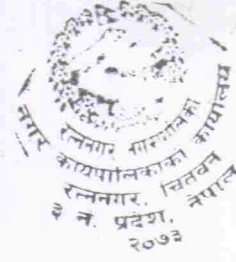 रत्ननगर नगरपालिका
नगर कार्यपालिकाको कार्यालय
रत्ननगर, चितवन
३ नं. प्रदेश, नेपाल
२०७३